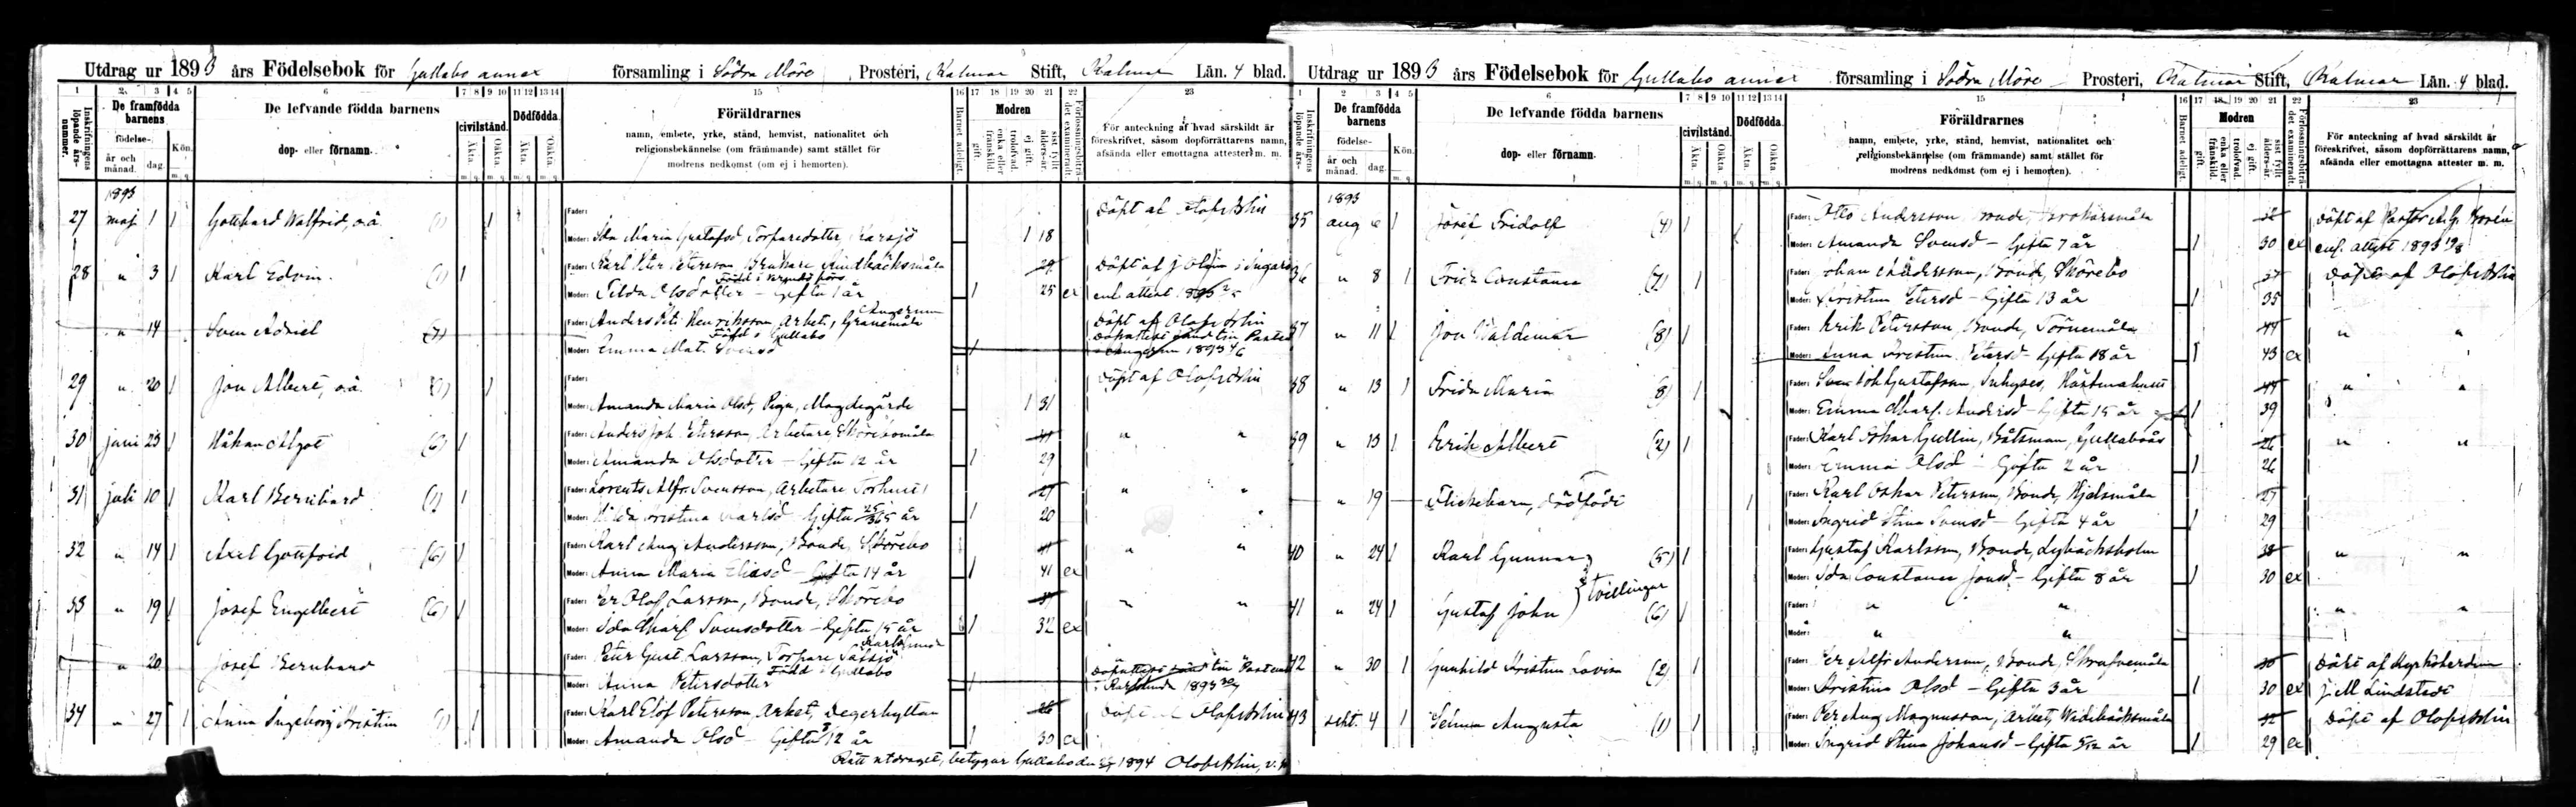 Utdrag ur 1893 års Födelsebok för Gullabo annex församling i Södra Möre Prosteri, Kalmar Stift, Kalmar Län. 4 blad.
1 2 3 4 5 6 7 8 9 10 11 12 13 14 15 16 17 18 19 20 21 22 23
Inskrifningens löpande års-nummer.
De framfödda barnens
födelse-
år och månad.
dag.
Kön.
m. q.
De lefvande födda barnens
dop- eller förnamn.
civilstånd.
Äkta.
Oäkta.
Dödfödda.
Äkta.
Oäkta.
Föräldrarnes
namn, embete, yrke, stånd, hemvist, nationalitet och
religionsbekännelse (om främmande) samt stället för
modrens nedkomst (om ej i hemorten).
Barnet adeligt.
Modren
gift.
enka eller frånskild.
trolofvad.
ej gift.
sist fyllt ålders-år.
Förlossningsbiträdet examineradt.
För anteckning af hvad särskildt är
föreskrifvet, såsom dopförrättarens namn,
afsända eller emottagna attester m. m.
1893
27 maj 1 1 Gotthard Walfrid, o.ä. (1) 1 Fader: Döpt af Olof Ihlin
Moder: Ida Maria Gustafsd Torparedotter, Karsjö 1 18
28 " 3 1 Karl Edvin (1) 1 Fader: Karl Peter Petersson Brukare 29 Döpt af
Född i
Moder: Tilda Olsdotter - Gifta 1 år 1 25 ex enl attest 1893
" 14 Sven Adriel Fader: Anders Henriksson Arbet, Granemåla Döpt af Olof Ihlin
Född i Gullabo
Moder: Emma Mat. Svensd 1 1893 4/6
29 " 20 1 Jon Albert, o.ä. 1 Fader: Döpt af Olof Ihlin
Moder: Amanda Maria Olsd, Piga, Magdegärde 1 31
30 juni 23 1 Håkan Algot (6) 1 Fader: Anders Joh Petersson, Arbetare Skörebomåla " "
Moder: Amanda Olsdotter - Gifta 12 år 1 29
31 juli 10 1 Karl Bernhard (1) 1 Fader: Lorents Alfr Svensson, Arbetare Torhult 27 " "
Moder: Hilda Kristina Karlsd - Gifta år 1 20
32 " 14 1 Axel Gottfrid (6) 1 Fader: Karl Aug Andersson, Bonde, Skörebo 41 " "
Moder: Anna Maria Eliasd - Gifta 14 år 1 41 ex
33 " 19 1 Josef Engelbert (6) 1 Fader: Per Olof Larsson, Bonde, Skörebo " "
Moder: Ida Charl Svensdotter - Gifta 15 år 1 32 ex
" 20 Josef Bernhard Fader: Peter Gust Larsson, Torpare
Född i Gullabo
Moder: Anna Petersdotter 1893
34 " 27 1 Anna Ingeborg Kristina (1) 1 Fader: Karl Elof Petersson, Arbet, Degerhyttan 26 Döpt af Olof Ihlin
Moder: Amanda Olsd - Gifta år 1 30 ex
Rätt utdraget, betygar Gullabo den 1894 Olof Ihlin, v.
Utdrag ur 1893 års Födelsebok för Gullabo annex församling i Södra Möre Prosteri, Kalmar Stift, Kalmar Län. 4 blad.
1 2 3 4 5 6 7 8 9 10 11 12 13 14 15 16 17 18 19 20 21 22 23
Inskrifningens löpande års-nummer.
De framfödda barnens
födelse-
år och månad.
dag.
Kön.
m. q.
De lefvande födda barnens
dop- eller förnamn.
civilstånd.
Äkta.
Oäkta.
Dödfödda.
Äkta.
Oäkta.
Föräldrarnes
namn, embete, yrke, stånd, hemvist, nationalitet och
religionsbekännelse (om främmande) samt stället för
modrens nedkomst (om ej i hemorten).
Barnet adeligt.
Modren
gift.
enka eller frånskild.
trolofvad.
ej gift.
sist fyllt ålders-år.
Förlossningsbiträdet examineradt.
För anteckning af hvad särskildt är
föreskrifvet, såsom dopförrättarens namn,
afsända eller emottagna attester m. m.
1893
35 aug 6 1 Josef Fridolf (4) 1 Fader: Otto Andersson Bonde, Döpt af Pastor
Moder: Amanda Svensd - Gifta 7 år 1 30 ex enl. attest 1893
36 " 8 1 Frida Constance (7) 1 Fader: Johan Andersson, Bonde, Skörebo 37 Döpt af Olof Ihlin
Moder: Kristina Petersd - Gifta 13 år 1 35
37 " 11 1 Jon Waldemar (8) 1 Fader: Erik Petersson, Bonde, Törnemåla 44 " "
Moder: Anna Kristina Petersd - Gifta 18 år 1 43 ex
38 " 13 1 Frida Maria (8) 1 Fader: Sven Joh Gustafsson, Inhyses, 44 " "
Moder: Emma Charl. Andersd - Gifta 15 år 1 39
39 " 13 1 Erik Albert (2) 1 Fader: Karl Oskar Gullin, Båtsman, Gullaboås 26 " "
Moder: Emma Olsd - Gifta 2 år 1 26
" 19 Flickebarn, dödfödt 1 Fader: Karl Oskar Petersson, Bonde, Hjelsmåla 27
Moder: Ingrid Stina Svensd - Gifta 4 år 1 29
40 " 24 1 Karl Gunnar (5) 1 Fader: Gustaf Karlsson, Bonde, Lybäcksholm 38 " "
Moder: Ida Constance Jonsd - Gifta 8 år 1 30 ex
Tvillingar
41 " 24 1 Gustaf John (6) 1 Fader: " " " "
Moder: " "
42 " 30 1 Gunhild Kristina Lovisa (2) 1 Fader: Per Alfr Andersson, Bonde, Skrufvemåla 30 Döpt af Kyrkoherden
Moder: Kristina Olsd - Gifta 3 år 1 30 ex J. M Lindstedt
43 sept. 4 1 Selma Augusta (1) 1 Fader: Per Aug Magnusson, Arbet, Widebäcksmåla Döpt af Olof Ihlin
Moder: Ingrid Stina Johansd - Gifta 5/12 år 1 29 ex